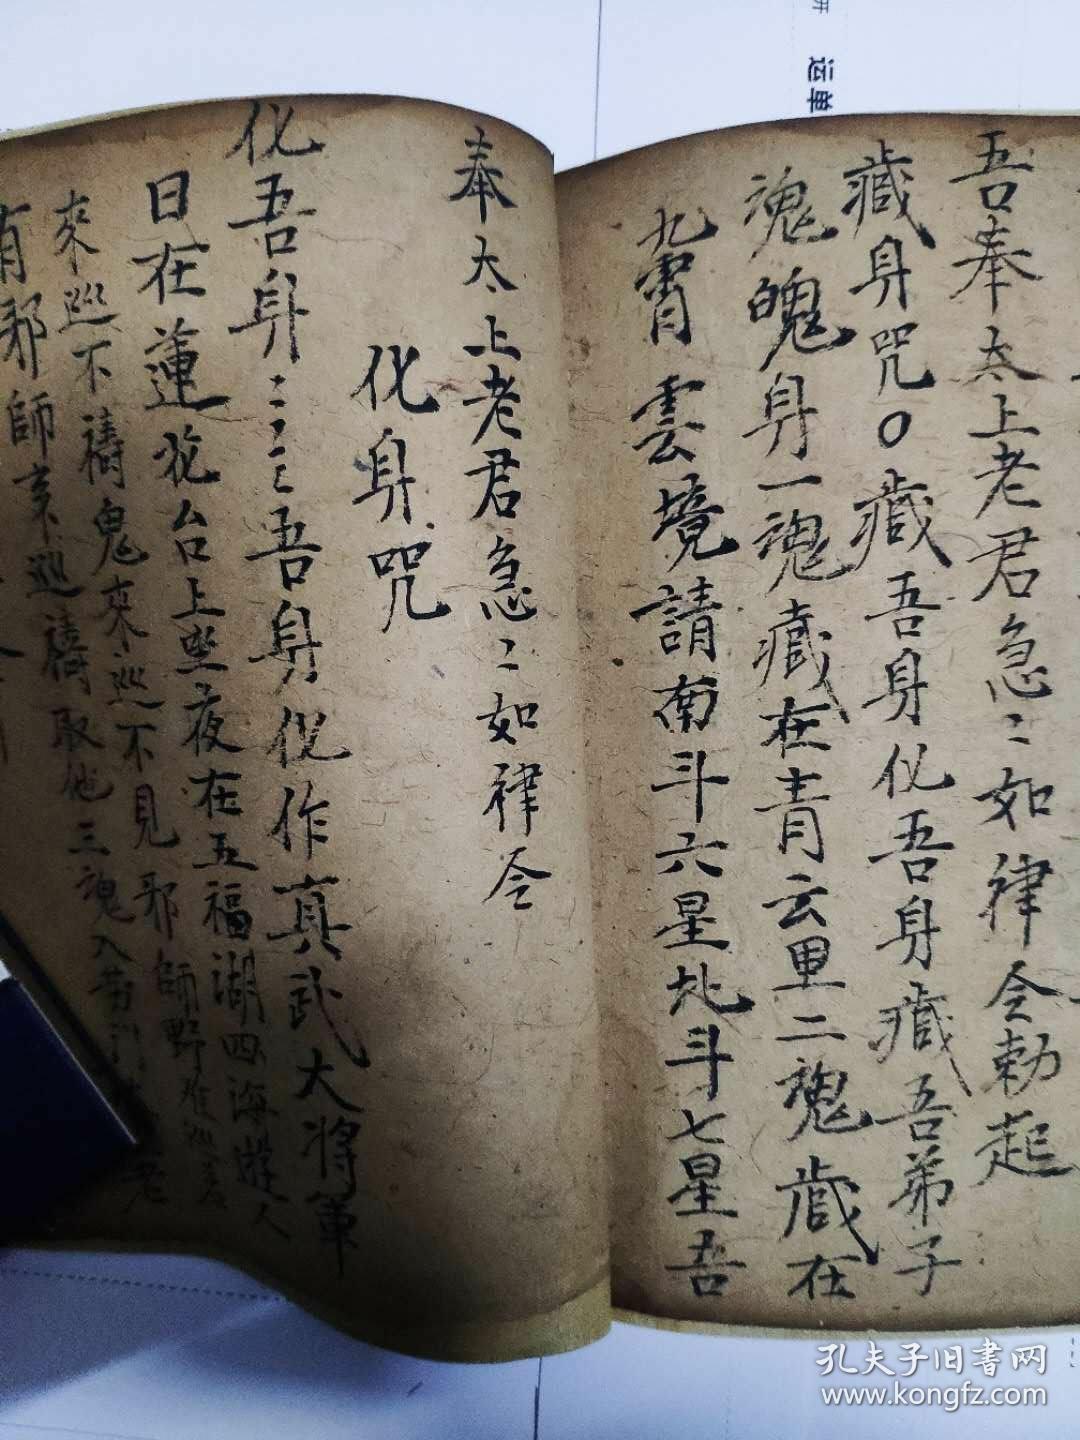 吾奉太上老君急〻如律令勅起
藏身咒〇藏吾身化吾身藏吾弟子
魂魄身一魂藏在青云里二魂藏在
九霄雲境請南斗六星北斗七星吾
奉太上老君急〻如律令
化身咒
化吾身〻〻〻吾身化作真武大将軍
日在蓮花台上坐夜在五福湖四海遊人
來巡不禱鬼來巡不見邪師野
有邪師來巡禱取他三魂入
运单
孔夫子旧书网
www.kongfz.com